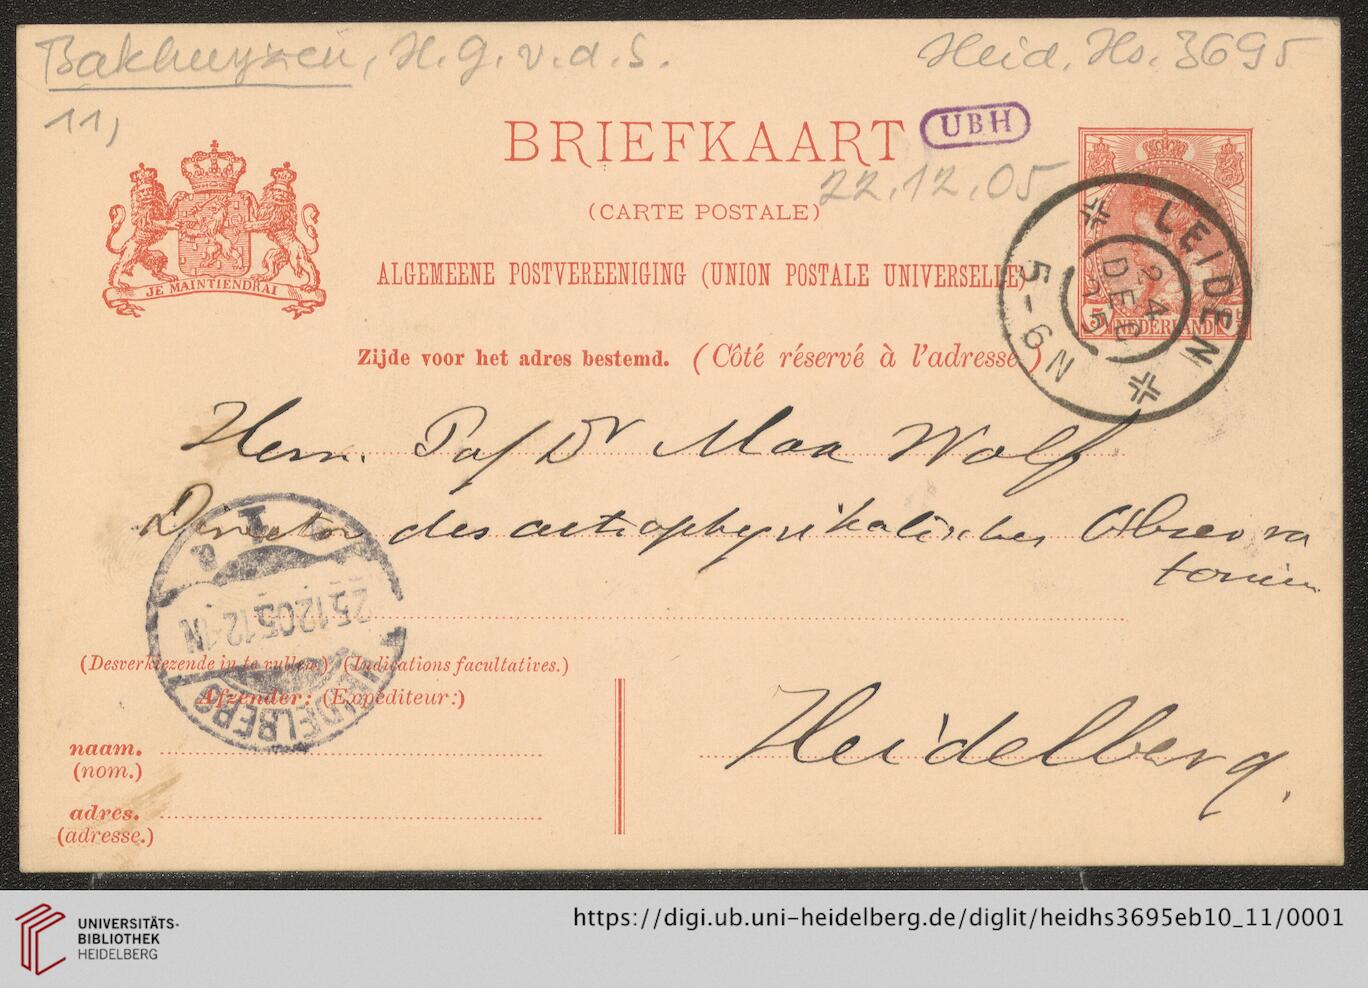 Bakhuyzen, H. G. v. d. S.
Heid. Hs. 3695
11,
BRIEFKAART
UBH
22.12.05
(CARTE POSTALE)
ALGEMEENE POSTVEREENIGING (UNION POSTALE UNIVERSELLE)
JE MAINTIENDRAI
Zijde voor het adres bestemd. (Côté réservé à l'adresse.)
5 NEDERLAND
LEIDEN
24 DEC
5-6N
Herrn. Prof Dr Max Wolf
Director des astrophysikalischen Observa
toriums
25.12.05.12-1N
HEIDELBERG
1
(Desverkiezende in te vullen.) (Indications facultatives.)
Afzender: (Expéditeur:)
naam.
(nom.)
adres.
(adresse.)
Heidelberg.
UNIVERSITÄTS-
BIBLIOTHEK
HEIDELBERG
https://digi.ub.uni-heidelberg.de/diglit/heidhs3695eb10_11/0001